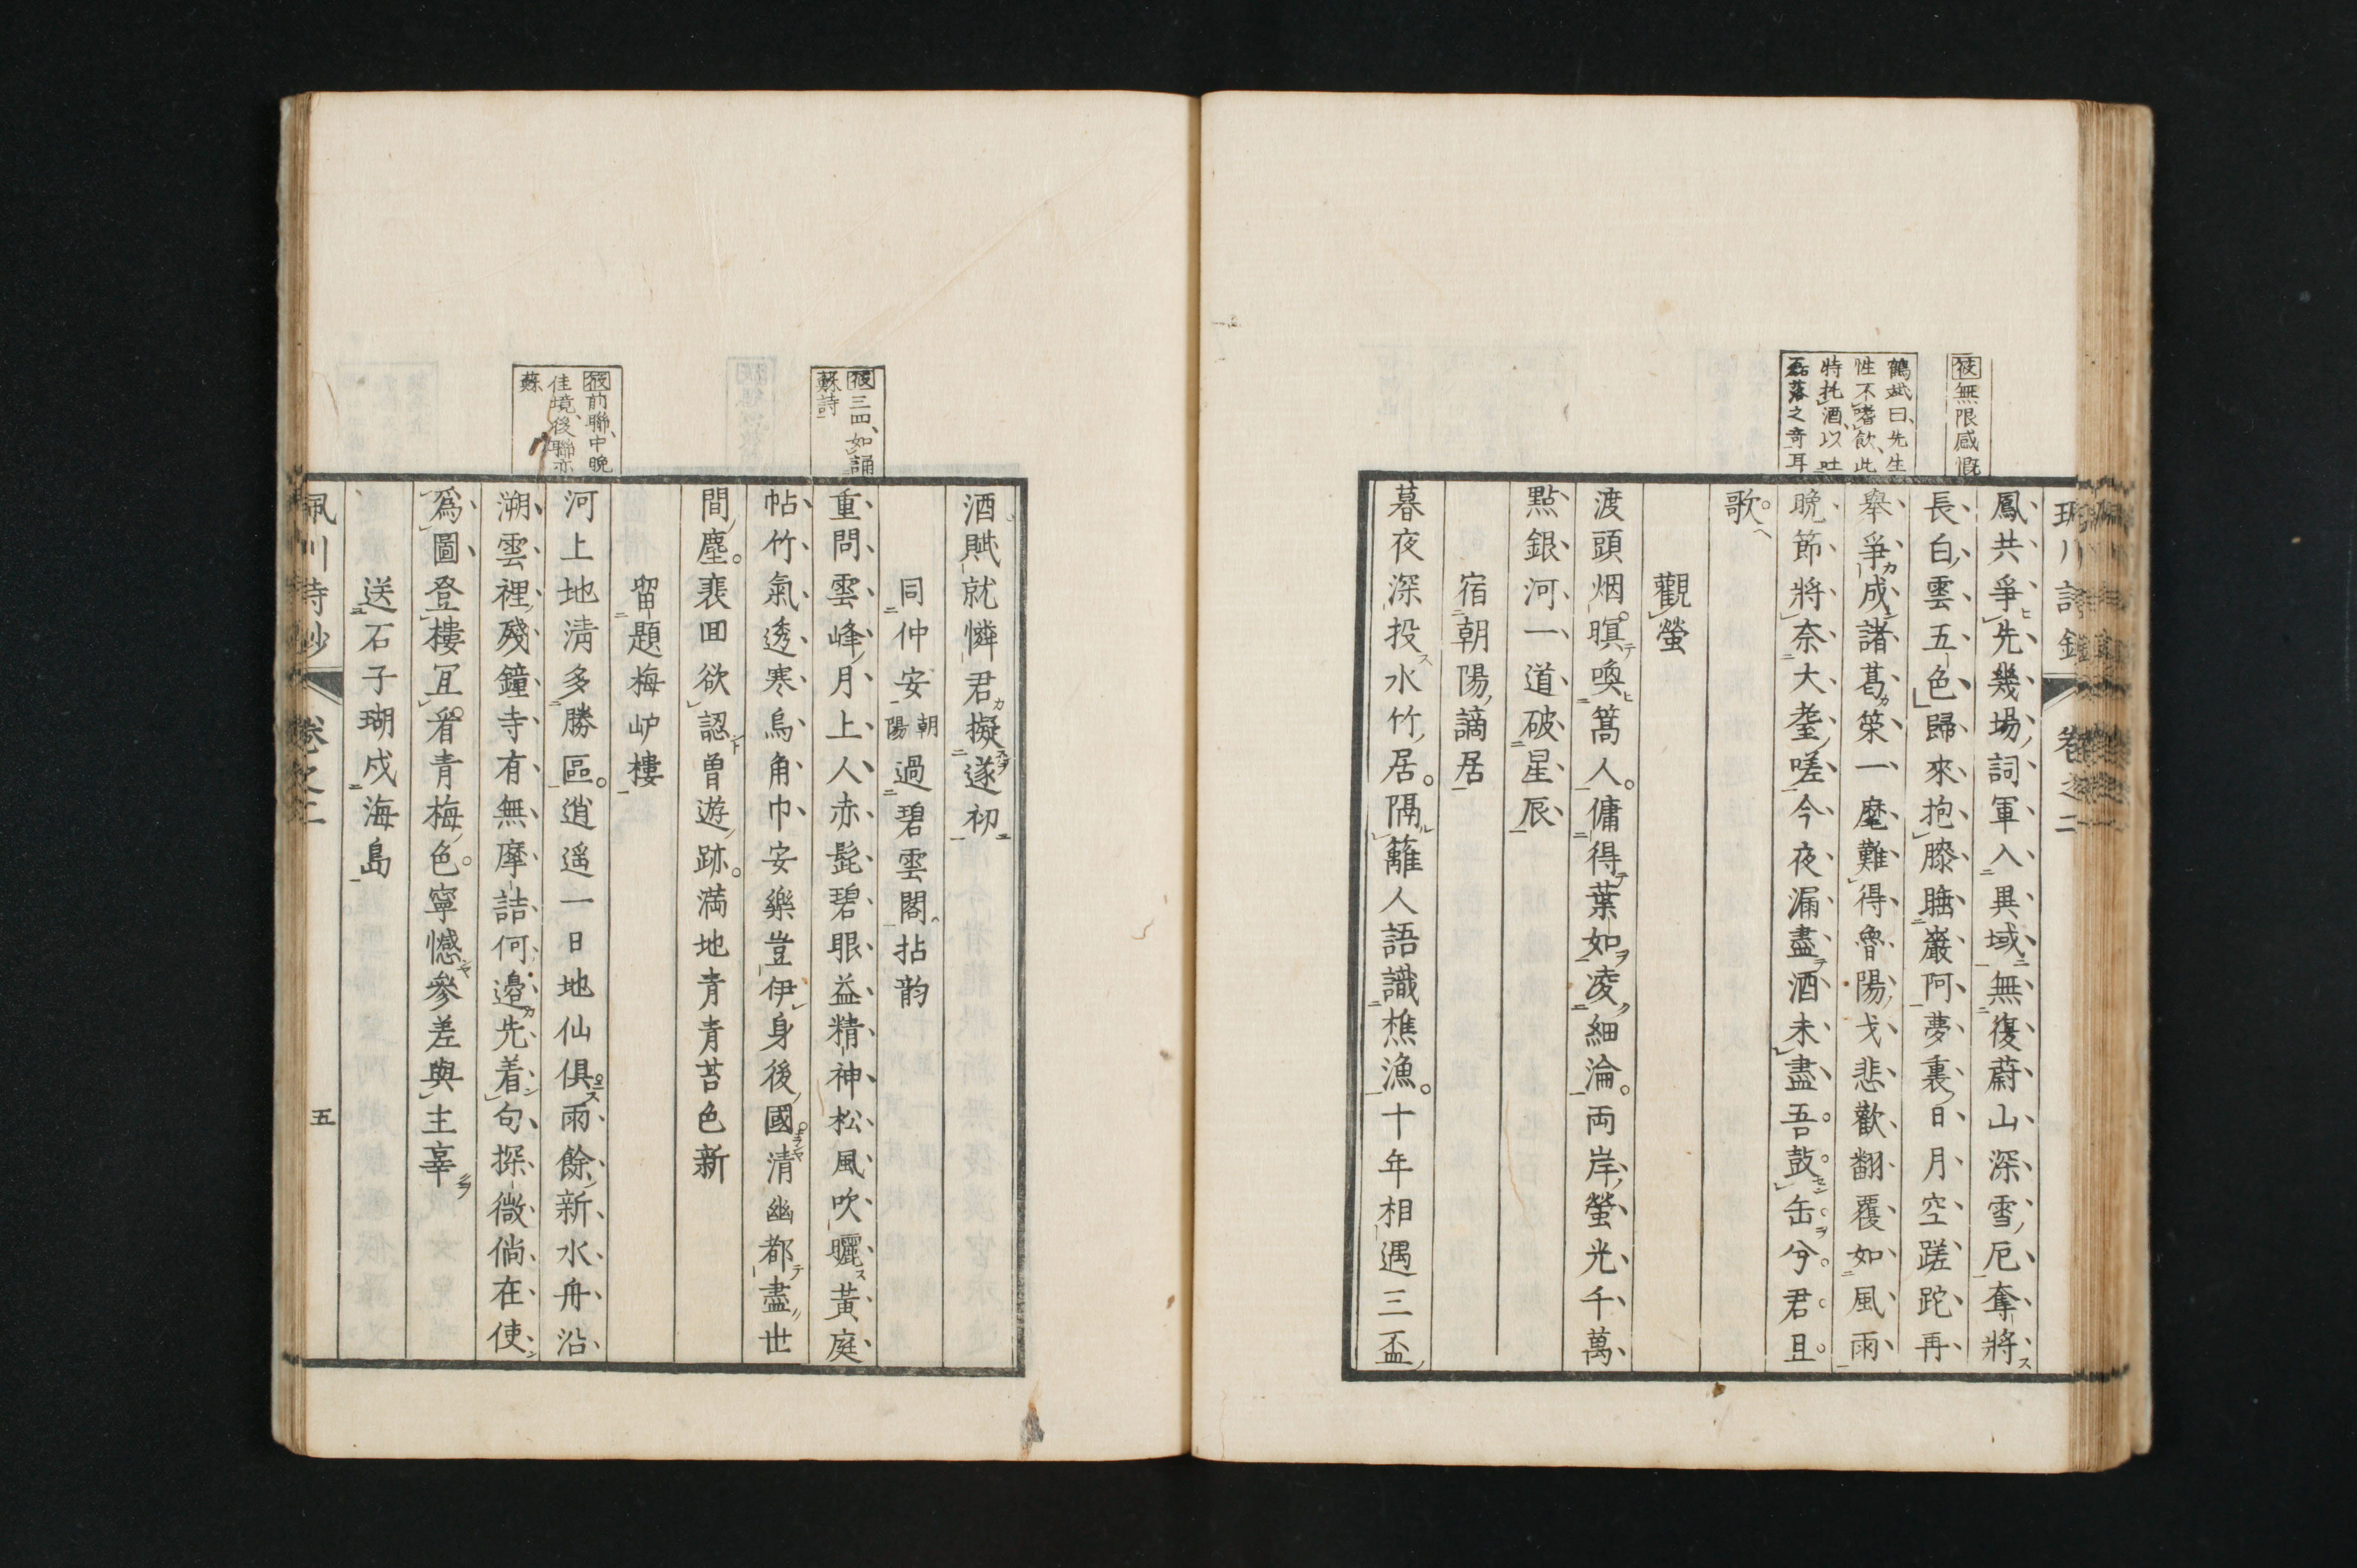 筱無限感慨
鶴斌曰先生
性不嗜飲此
特托酒以吐
磊落之奇耳
川詩鈔 卷之二
鳳共爭先幾場詞軍入異域無復蔚山深雪厄奪將
長白雲五色歸來抱膝睡巖阿夢裏日月空蹉跎再
舉爭成諸葛策一麾難得魯陽戈悲歡翻覆如風雨
晩節將奈大耋嗟今夜漏盡酒未盡吾鼓缶兮君且
歌
觀螢
渡頭烟暝喚篙人傭得葉如凌細淪両岸螢光千萬
點銀河一道破星辰
宿朝陽謫居
暮夜深投水竹居隔籬人語識樵漁十年相遇三盃
筱三四如誦
蘇詩
筱前聯中晩
佳境後聯亦
蘇
酒賦就憐君擬遂初
同仲安朝陽過碧雲閣拈韵
重問雲峰月上人赤髭碧眼益精神松風吹曬黃庭
帖竹氣透寒烏角巾安樂豈伊身後國清幽都盡世
間塵裴回欲認曽遊跡満地青青苔色新
留題梅屿樓
河上地淸多勝區逍遥一日地仙俱雨餘新水舟沿
溯雲裡殘鐘寺有無摩詰何邊先着句探微倘在使
爲圖登樓冝看青梅色寧憾參差與主辜
送石子瑚戍海島
佩川詩鈔 卷之二 五